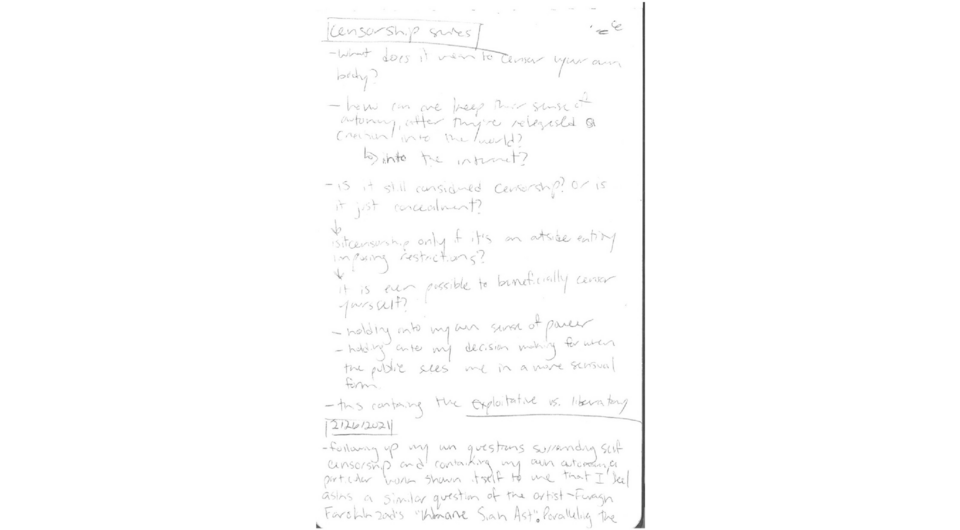 censorship series
- what does it mean to censor your own
body?
- how can one keep their sense of
autonomy, after they've released a
creation into the world?
↳ into the internet?
- is it still considered censorship? or is
it just concealment?
↓
is it censorship only if it's an outside entity
imposing restrictions?
↓
it is even possible to beneficially censor
yourself?
- holding into my own sense of power
- holding onto my decision making for when
the public sees me in a more sensual
form.
- this containing the exploitative vs. liberatory
2/26/2021
- following up my own questions surrounding self
censorship and containing my own autonomy, a
particular woman shown itself to me that I feel
asks a similar question of the artist - Forugh
Farokhzad's "Khaneh Siah Ast". Paralleling the